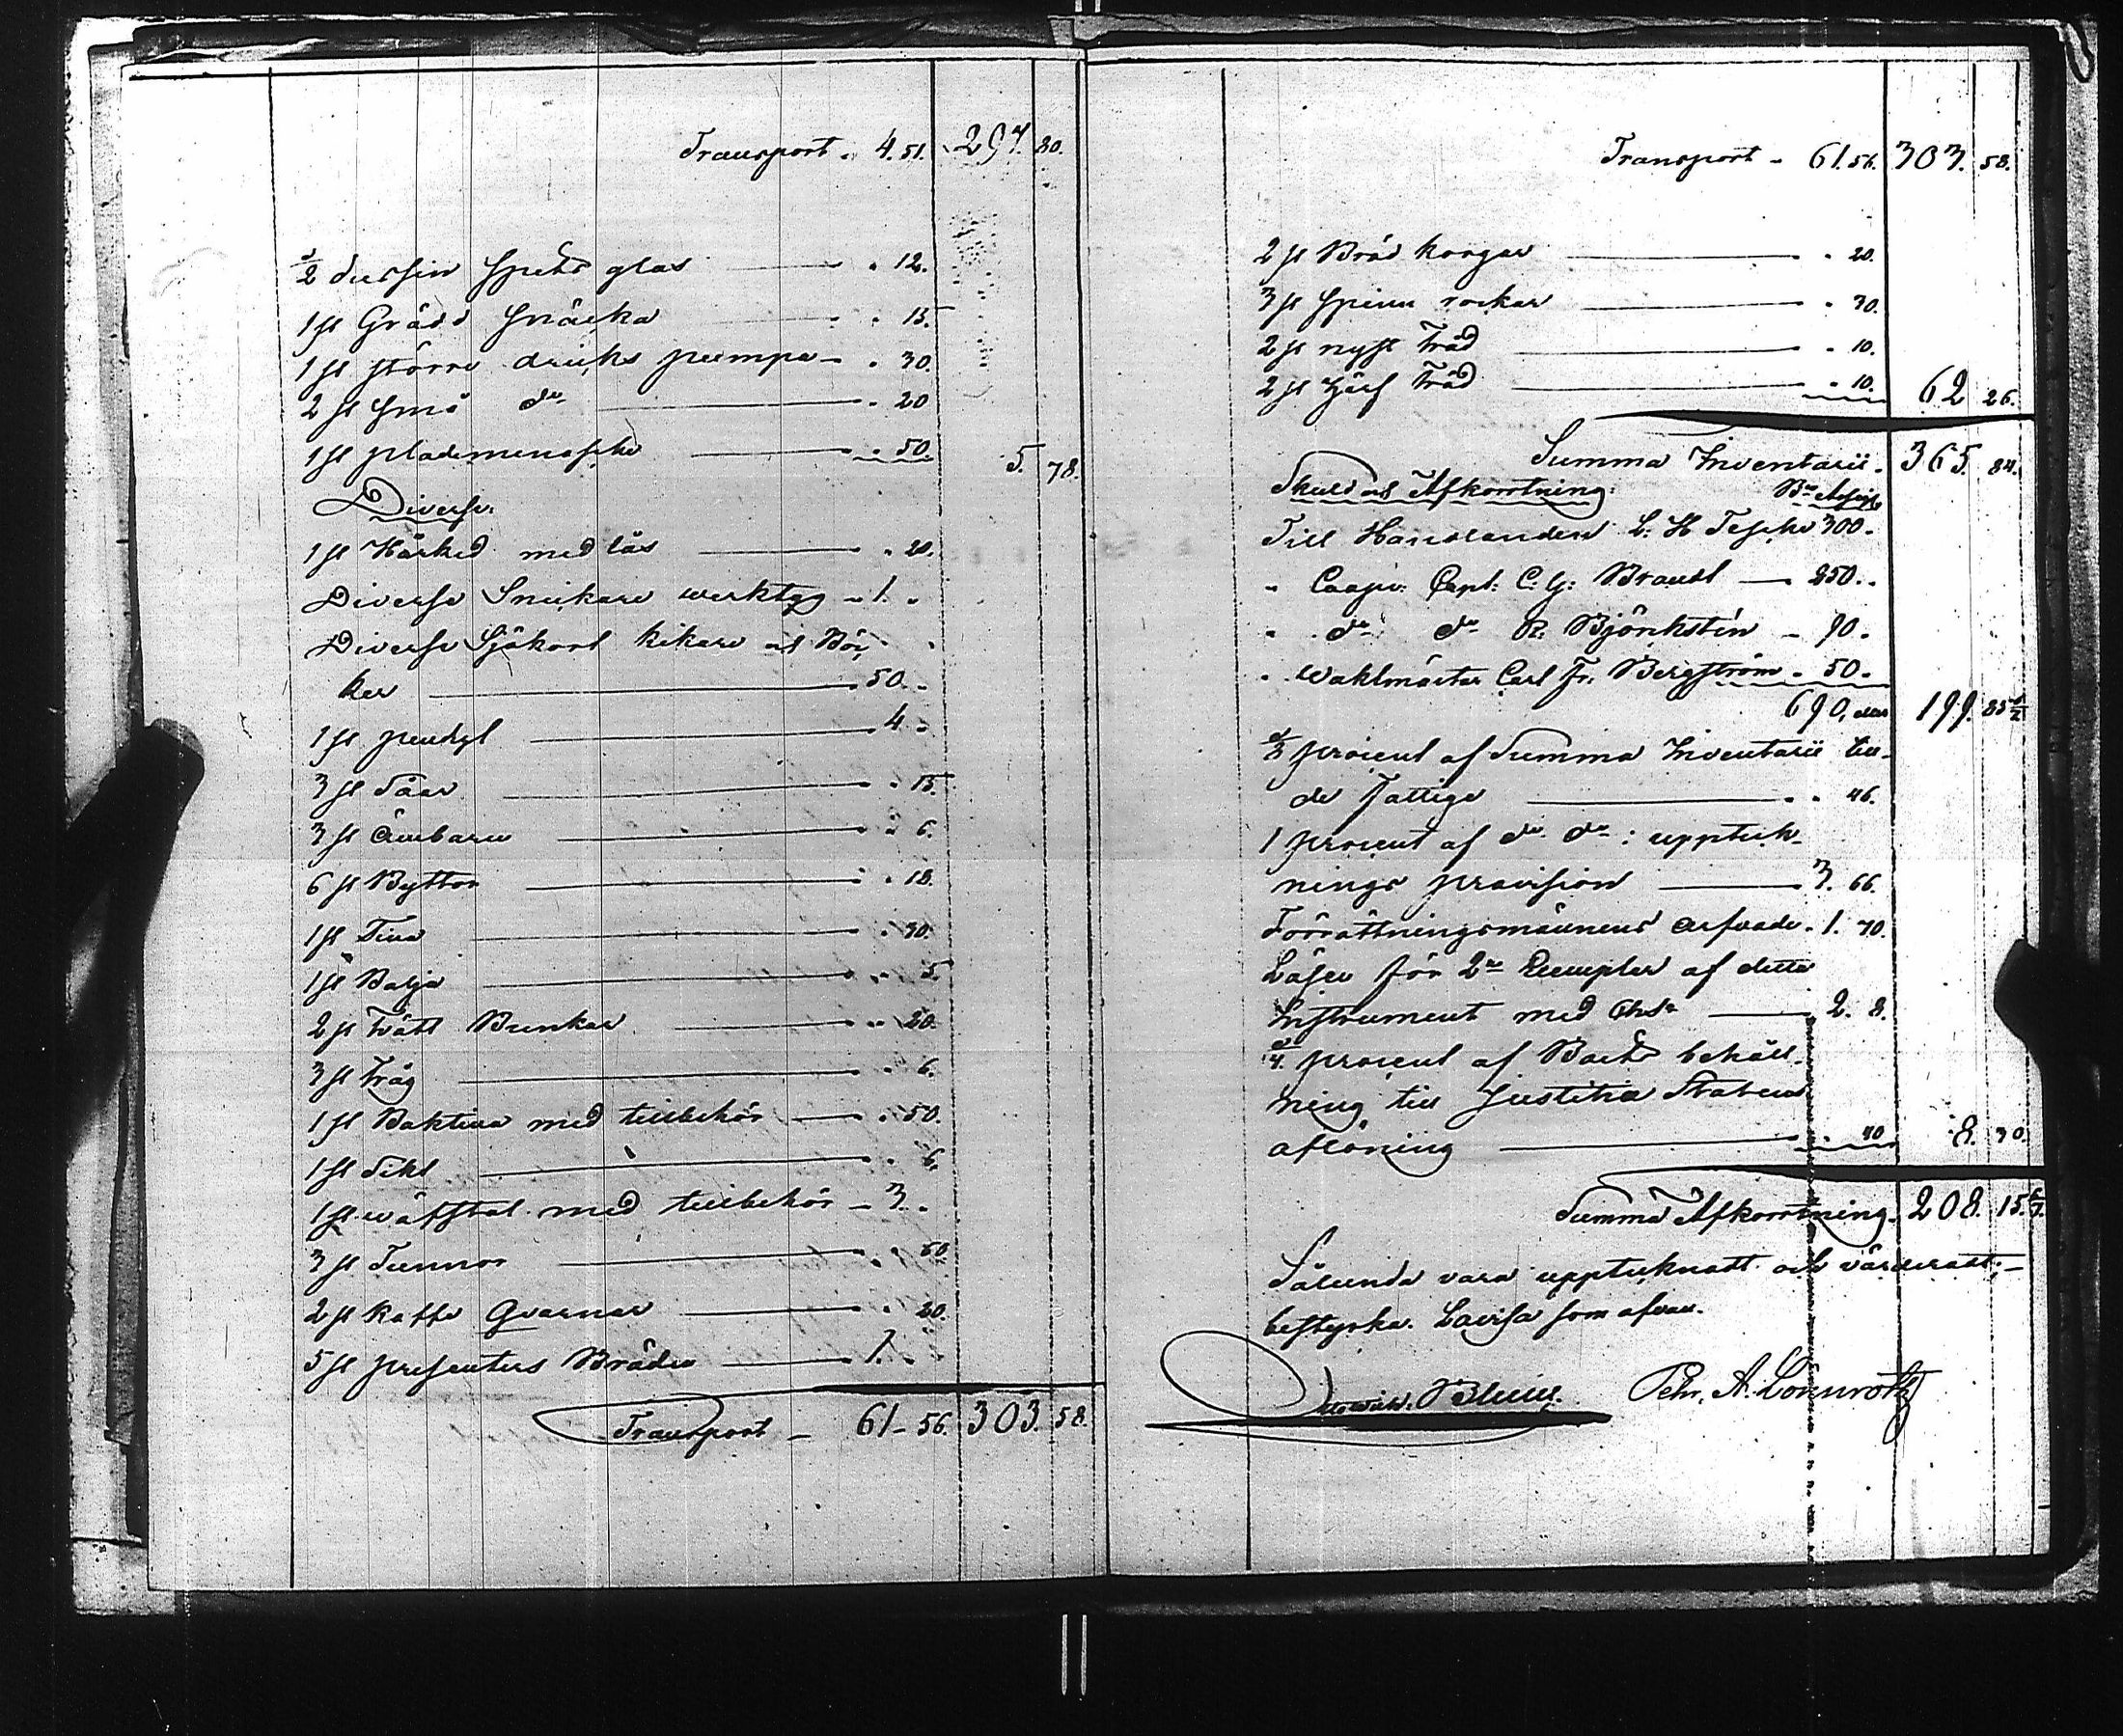 Transport - 4.51. 297. 80.
1/2 dussin spets glas - 12.
1 st Grädd snäcka - 15.
1 st större dricks pumpa - 30.
2 st små do - 20
1 st plademenasche - 50. 5. 78.
Diverse.
1 st Kärked med lås - 20.
Diverse Snickare werktyg - 1. -
Diverse Sjökort kikare och Böc
ker - 50. -
1 st pendyl - 4. -
3 st Såar - 15.
3 st Ämbaren - 6.
6 st Byttor - 18.
1 st Tina - 30.
1 st Balja - 5
2 st Tvätt Bunkar - 20.
3 st Tråg - 6.
1 st Baktina med tillbehör - 50.
1 st Sikt - 6.
1 st wäfstol med tillbehör - 3. -
3 st Tunnor - 60
2 st kaffe Qvarnar - 20.
5 st presenters Bräden - 1. -
Transport - 61-56. 303. 58.
Transport - 61.56. 303. 58.
2 st Bröd korgar - 20.
3 st spinn rockar - 30.
2 st nyst Träd - 10.
2 st Härf Träd - 10. 62 26.
Summa Inventarii. 365. 84.
Skuld och Afkortning: Bco Assig
Till Handlanden L. H Teschen 300. -
" Coopv. Capt: C. G: Brandt - 250. -
" do do R. Björkstén - 90. -
" Waktmästar Carl Fr. Bergström - 50. -
690, eller 199. 85 5/7
1/8 procent af Summa Inventarii till
de Fattige - 46.
1 procent af do do: uppteck-
nings provision - 3. 66.
Förrättningsmännens arfvode - 1. 70.
Lösen för 2ne Exemplar af detta
Instrument med Chta - 2. 8.
1/4 procent af Boets behåll-
ning till Justitiæ Statens
aflöning - 40 8. 30.
Summa Afkortning. 208. 15 5/7.
Sålunda vara upptecknadt och värderadt;-
bestyrka. Lovisa som ofvan.
Pehr. A. Lönnroth